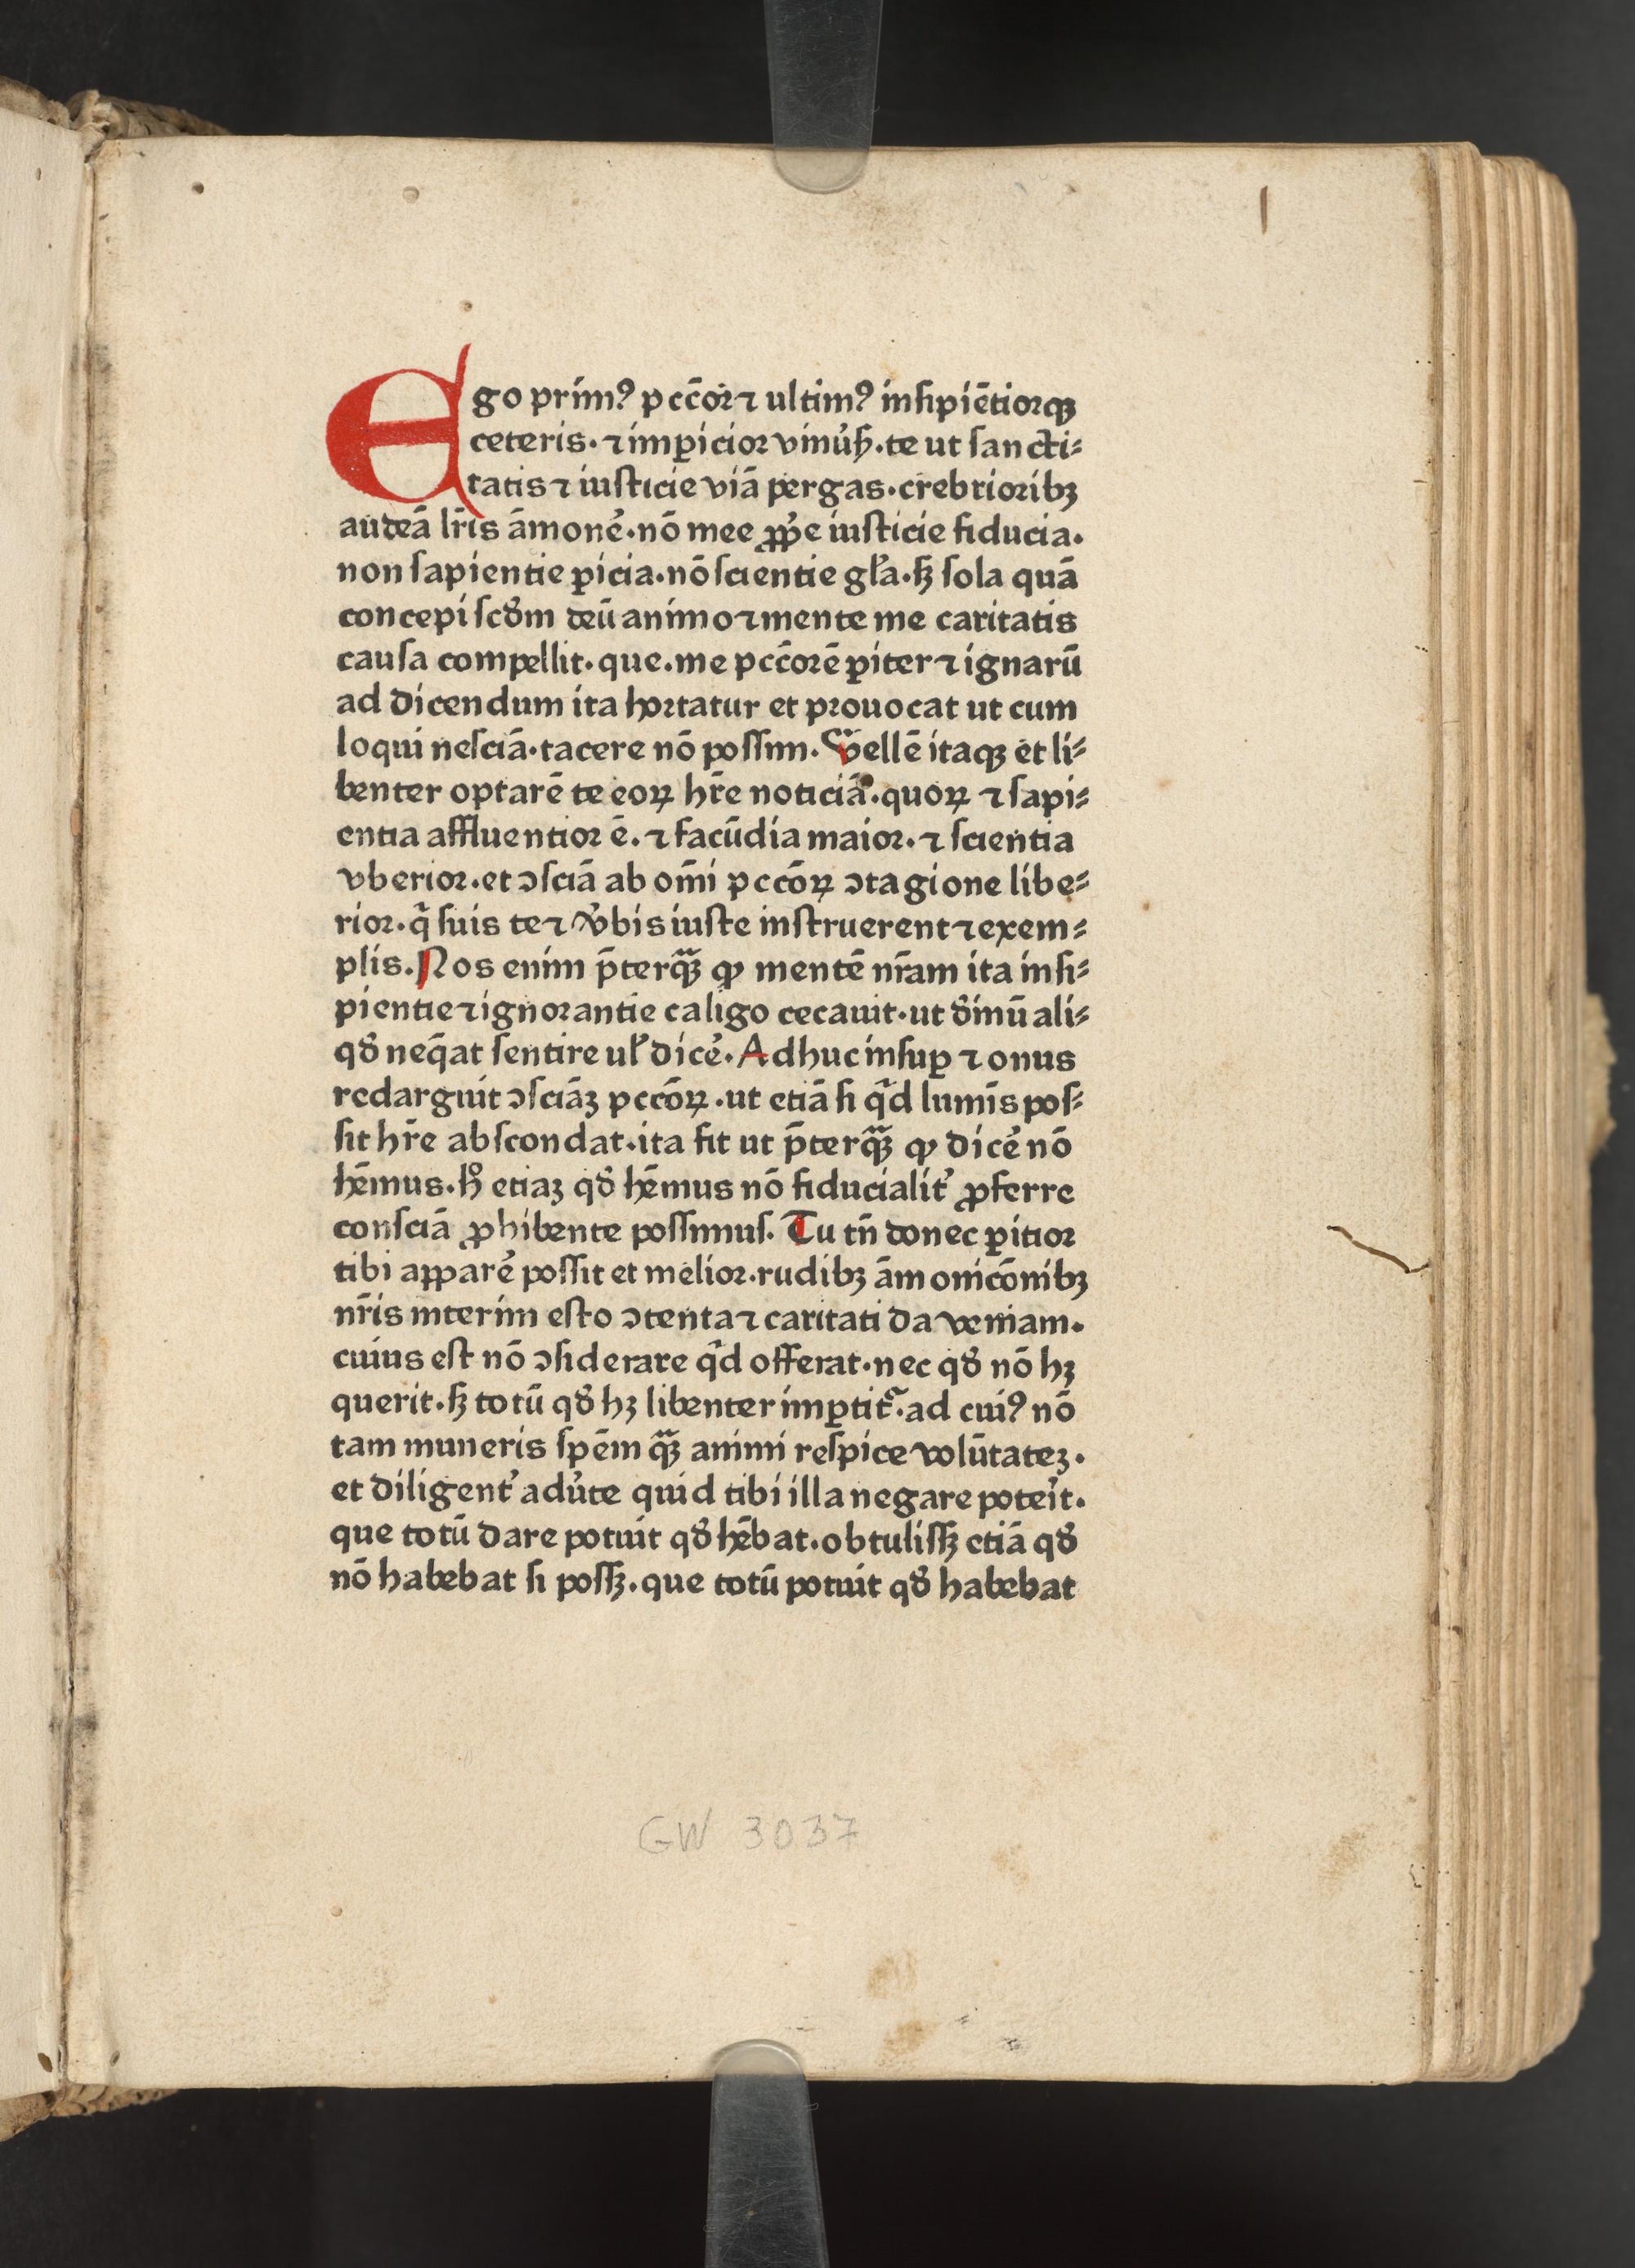 I
Ego primꝰ pcc̄or ⁊ ultimꝰ insipiētiorqꝫ
ceteris · ⁊ imꝑicior vniu̓sꝭ · te ut sancti⸗
tatis ⁊ iusticie viā pergas · crebrioribꝫ
audeā lr̄is āmone᷒ · nō mee ꝓp̓e iusticie fiducia ·
non sapientie ꝑicia · nō scientie gl̓a · sꝫ sola quā
concepi scd̓m deū animo ⁊ mente me caritatis
causa compellit · que · me pcc̄orē ꝑiter ⁊ ignarū
ad dicendum ita hortatur et prouocat ut cum
loqui nesciā · tacere nō possum · Vellē itaqꝫ et li⸗
benter optarē te eoꝝ hr̄e noticiā · quoꝝ ⁊ sapi⸗
entia affluentior ē · ⁊ facūdia maior · ⁊ scientia
vberior · et ꝯsciā ab om̄i pccōꝝ ꝯtagione libe⸗
rior · q̄ suis te ⁊ v̓bis iuste instruerent ⁊ exem⸗
plis · Nos enim p̄terqᷓꝫ ꝙ mentē nr̄am ita insi⸗
pientie ⁊ ignorantie caligo cecauit · ut diuinū ali⸗
qd̓ neq̄at sentire ul̓ dice᷒ · Adhuc insuꝑ ⁊ onus
redarguit ꝯsciāꝫ pccōꝝ · ut etiā si qͥd lumīs pos⸗
sit hr̄e abscondat · ita fit ut p̄terqᷓꝫ ꝙ dice᷒ nō
hēmus · hͦ etiaꝫ qd̓ hēmus nō fiducialit᷒ ꝓferre
consciā ꝓhibente possumus · Tu tn̄ donec ꝑitior
tibi appare᷒ possit et melior · rudibꝫ āmonicōnibꝫ
nr̄is interim esto ꝯtenta ⁊ caritati da veniam ·
cuius est nō ꝯsiderare qͥd offerat · nec qd̓ nō hꝫ
querit · sꝫ totū qd̓ hꝫ libenter imꝑtitᷣ · ad cuiꝰ nō
tam muneris spēm qᷓꝫ animi respice volūtateꝫ ·
et diligent᷒ adu̓te quid tibi illa negare potei̓t ·
que totū dare potuit qd̓ hēbat · obtulissꝫ etiā qd̓
nō habebat si possꝫ · que totū potuit qd̓ habebat
GW 3037